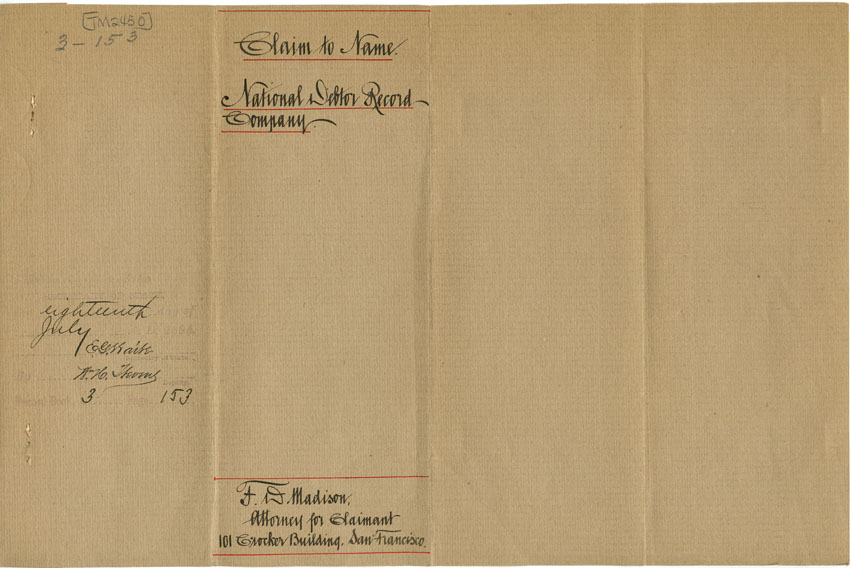 [TM2450]
3-153
Claim to Name.
National Debtor Record
Company.
eighteenth
July
3 153
F. D. Madison,
Attorney for Claimant
101 Crocker Building, San Francisco.